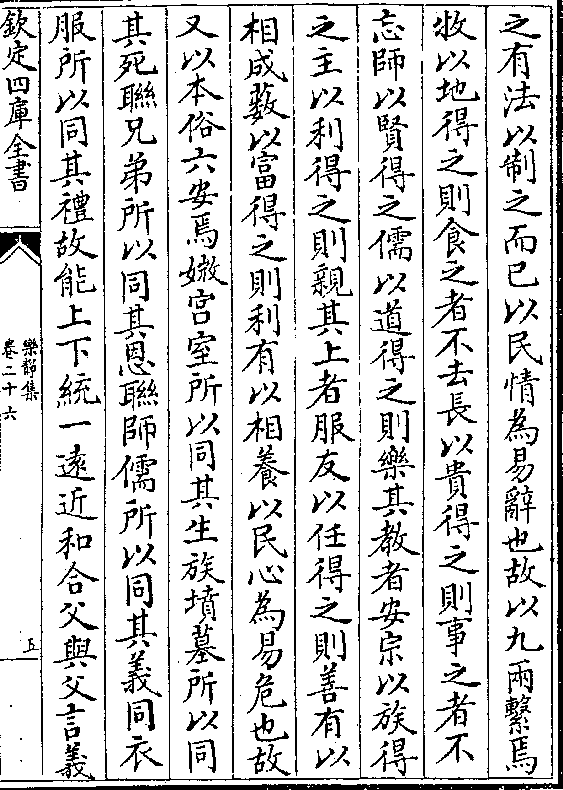 之有法以制之而已以民情為易辭也故以九兩繫焉
牧以地得之則食之者不去長以貴得之則事之者不
忘師以賢得之儒以道得之則樂其教者安宗以族得
之主以利得之則親其上者服友以任得之則善有以
相成藪以富得之則利有以相養以民心為易危也故
又以本俗六安焉媺宫室所以同其生族墳墓所以同
其死聯兄弟所以同其恩聯師儒所以同其義同衣
服所以同其禮故能上下統一遠近和合父與父言義
欽定四庫全書
樂靜集
卷二十六
五